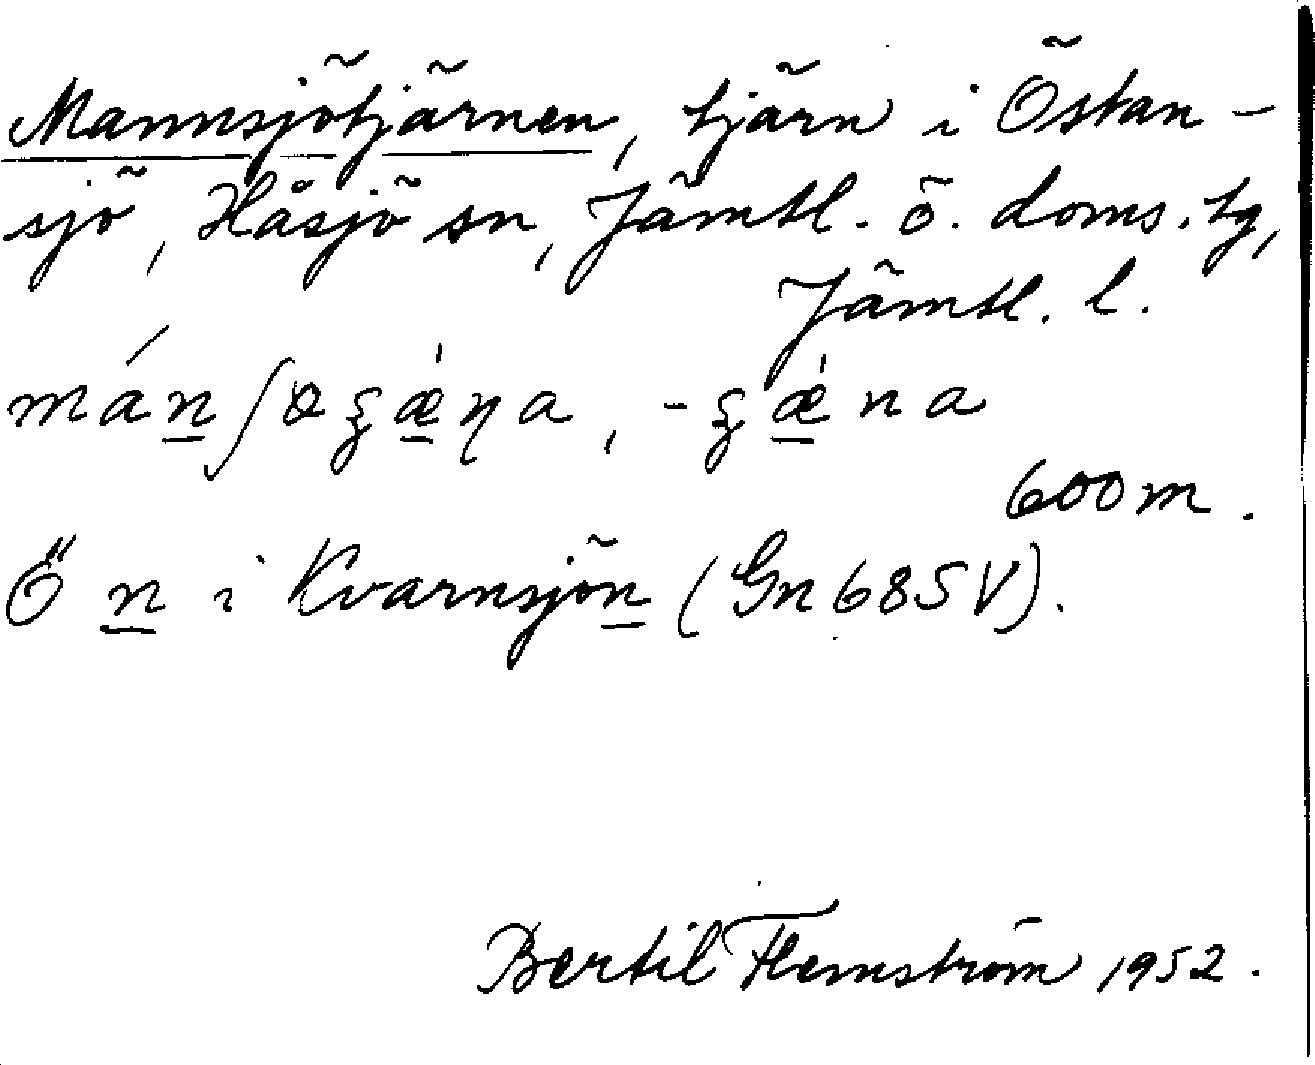 Mannsjötjärnen, tjärn i Östan-
sjö, Håsjö sn, Jämtl. ö. doms. tg,
Jämtl. l.
600 m.
Ö n i Kvarnsjön (Gn 685 V).
Bertil Flemström 1952.